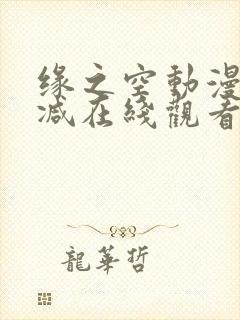 缘之空動漫
减在綫觀看
龍華哲